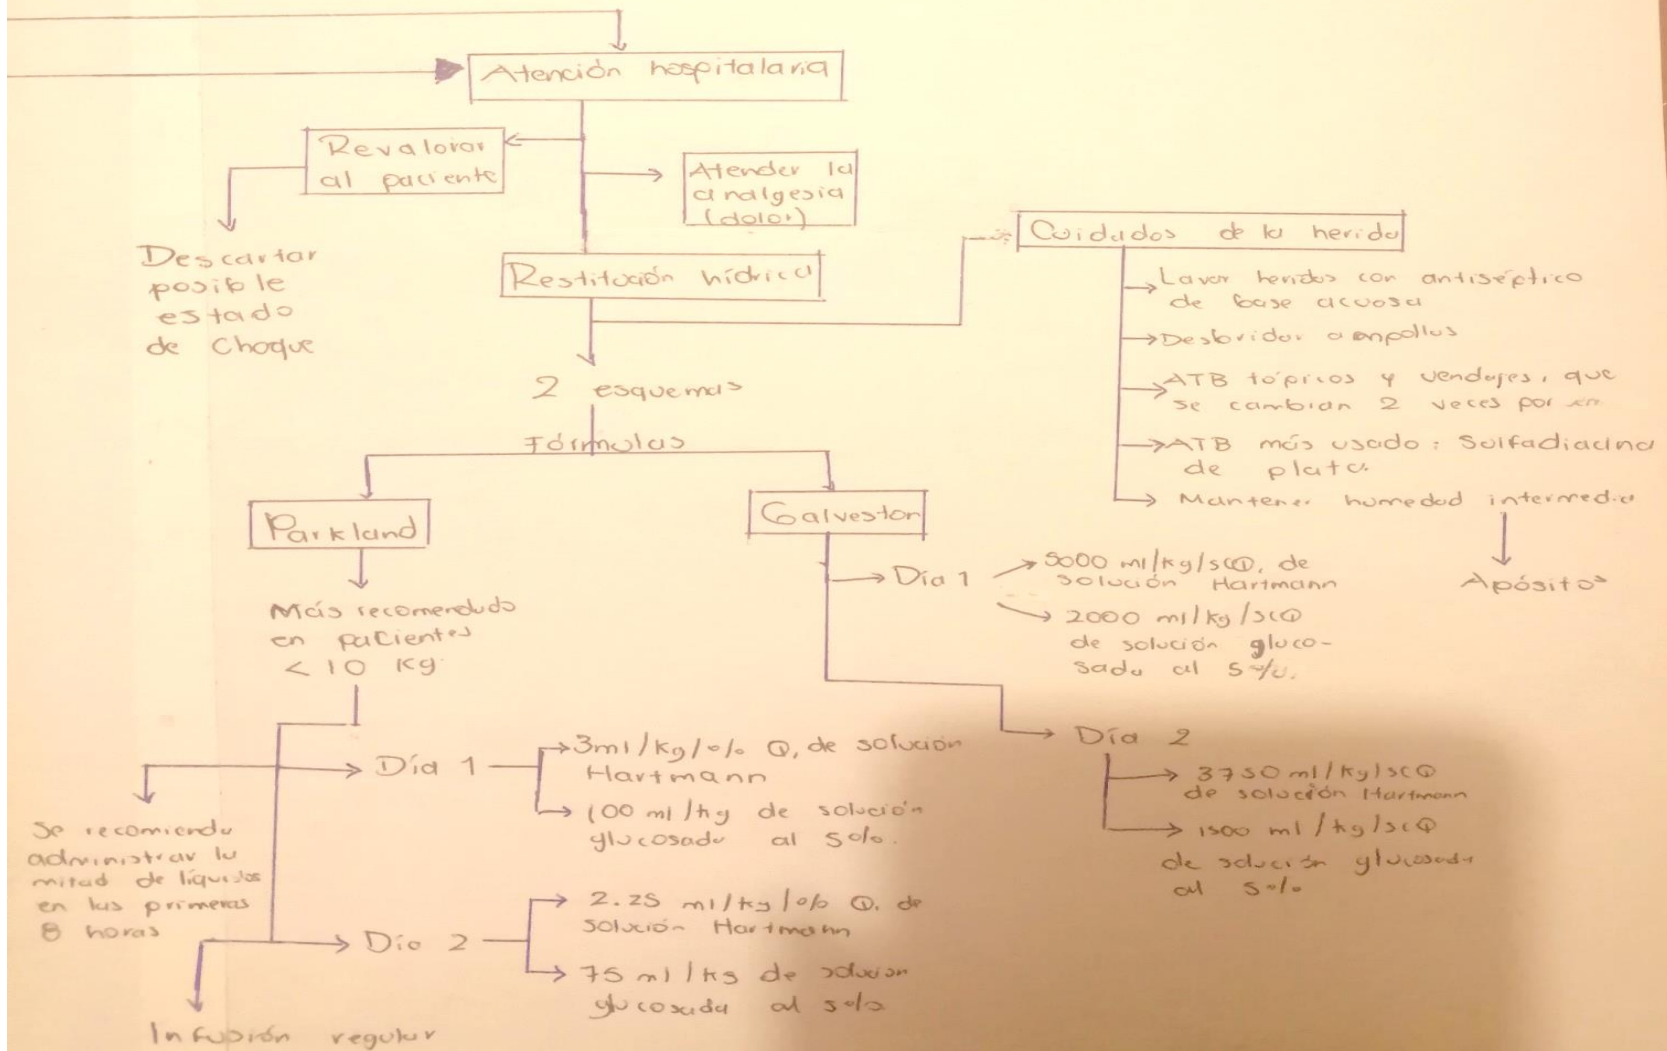 Atención hospitalaria
Revalorar
al paciente
Atender la
analgesia
(dolor)
Descartar
posible
estado
de choque
Restitución hídrica
Cuidados de la herida
Lavar heridas con antiséptico
de base acuosa
Desbridar ampollas
ATB tópicos y vendajes, que
se cambian 2 veces por
ATB más usado: Sulfadiacina
de plata.
Mantener humedad intermedia
Apósitos
2 esquemas
Fórmulas
Parkland
Más recomendado
en pacientes
< 10 Kg.
Se recomienda
administrar la
mitad de líquidos
en las primeras
8 horas
Día 1
3ml/Kg/% Q, de solución
Hartmann
100 ml/kg de solución
glucosada al 5%.
Día 2
2.25 ml/kg/% Q. de
solución Hartmann
75 ml/kg de solución
glucosada al 5%
Infusión regular
Galveston
Día 1
5000 ml/kg/scQ, de
solución Hartmann
2000 ml/kg/scQ
de solución gluco-
sada al 5%.
Día 2
3750 ml/kg/scQ
de solución Hartmann
1500 ml/kg/scQ
de solución glucosada
al 5%